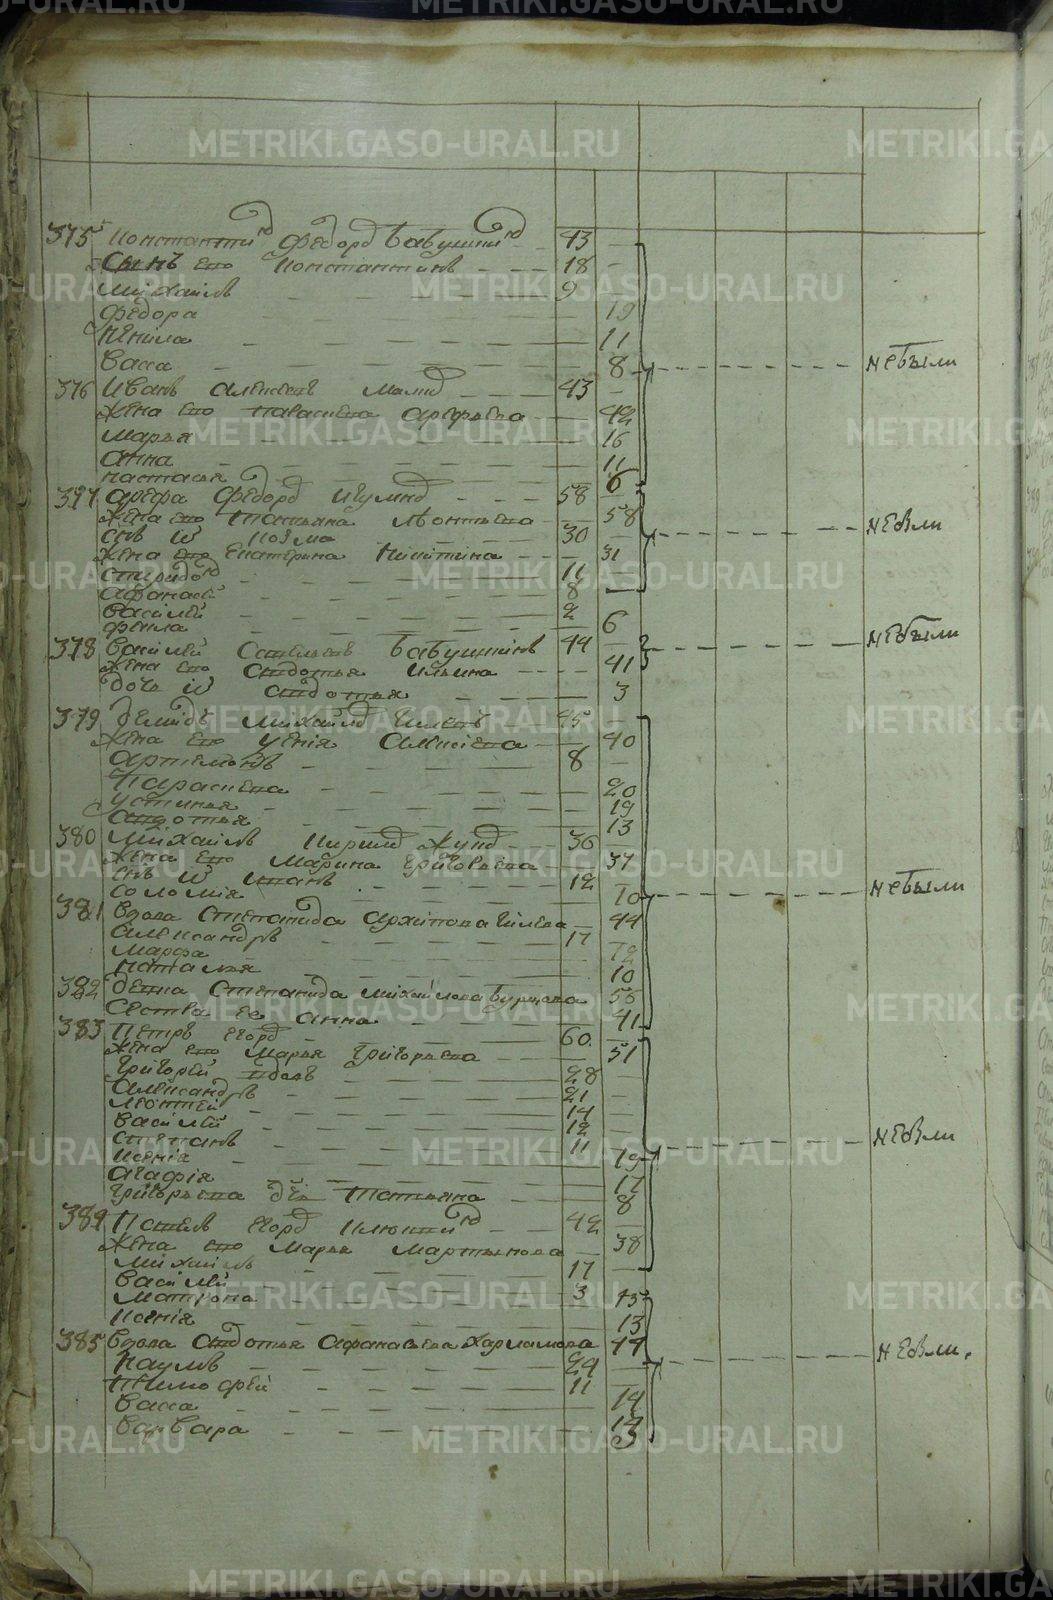 METRIKI.GASO-URAL.RU
375 Константин Федоров Бабушкин 43
Сынъ его Константинъ 18
Михаилъ 9
Федора 19
Ненила 11
Васса 8 небыли
376 Иванъ Алексеевъ 43
Жена его Параскева Арефьева 42
Марья 16
Анна 11
Настасья 6
377 Арефа Федоров 58
Жена его Татьяна Леонтьева 58 небыли
снъ и Козма 30
Жена его Екатерина Никитина 31
Спиридон 11
Афанасей 8
Василей 2
Фекла 6
378 Василей Савельевъ Бабушкинъ 44 небыли
Жена его Авдотья Ильина 41
дочь и Авдотья 3
379 Демидъ Михайлов Гилевъ 45
Жена его Алексеева 40
Артемонъ 8
Параскева 20
Устинья 19
Авдотья 13
380 Михаилъ Кирилов 36
Жена его Марина Григорьева 37
снъ и Иванъ 12
Соломия 10 небыли
381 Вдова Степанида Архипова Гилева 44
Александръ 17
Марфа 12
Наталья 10
382 Девка Степанида Михайлова Бурцова 55
Сестра ее Анна 41
383 Петръ Егоров 60
Жена его Марья Григорьева 51
Григорей 28
Александръ 21
Леонтей 14
Василей 12
Степанъ 11
Ксения 19 небыли
Агафия 17
Григорьева дч Татьяна 8
384 Павелъ Егоров 42
Жена его Марья Мартынова 38
Михаилъ 17
Василей 3
Матрона 15
Ксения 13
385 Вдова Авдотья Афанасьева Харламова 44
Наумъ 24 небыли.
Тимофей 11
Васса 14
Варвара 13
3